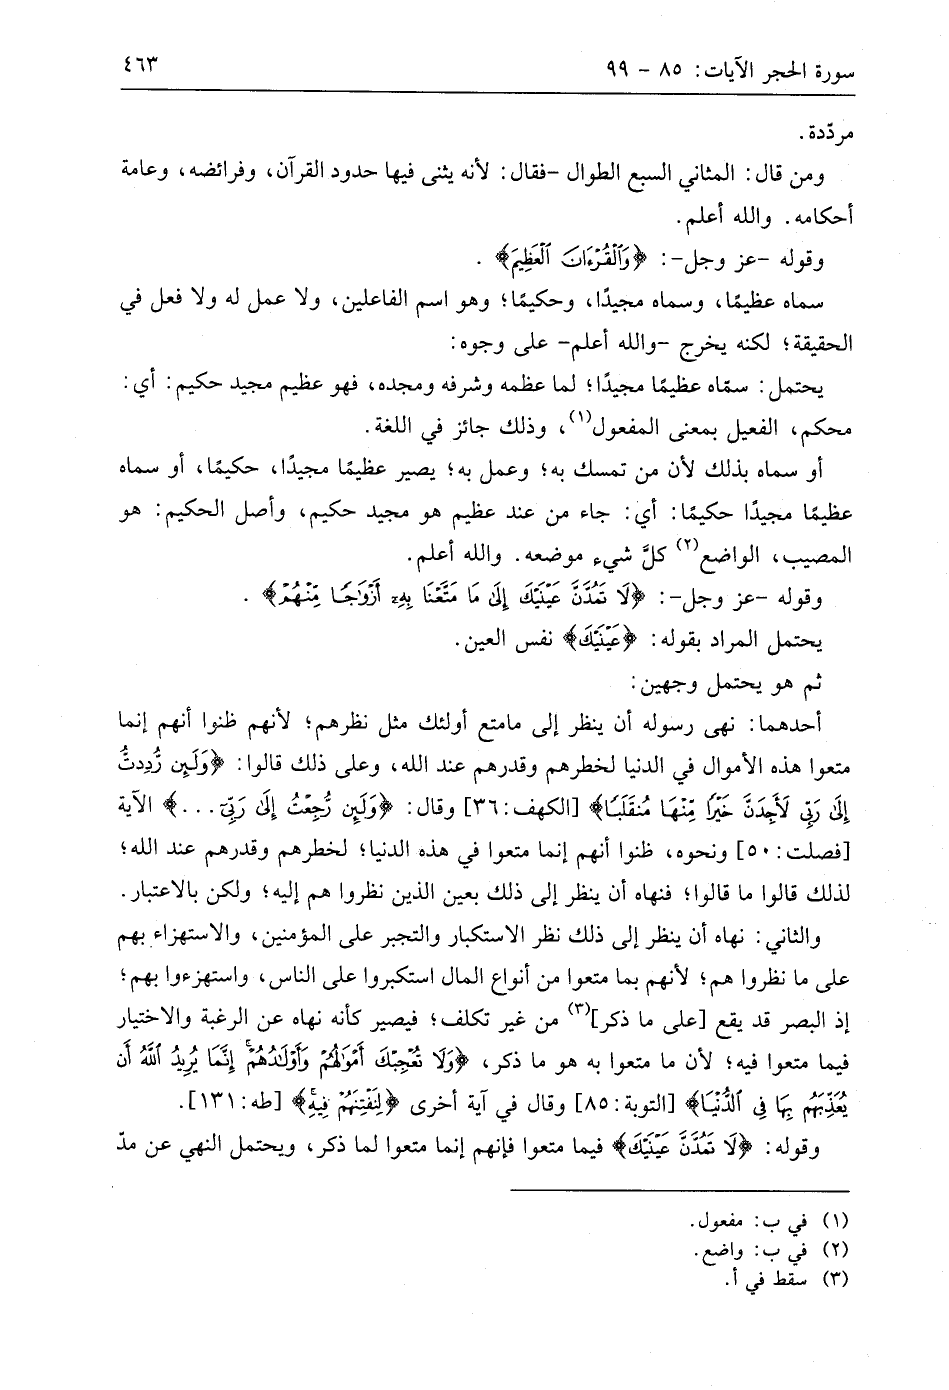 سورة الحجر الآيات: ٨٥ - ٩٩ ٤٦٣
مردّدة.
ومن قال: المثاني السبع الطوال -فقال: لأنه يثنى فيها حدود القرآن، وفرائضه، وعامة
أحكامه. والله أعلم.
وقوله -عز وجل-: ﴿وَٱلْقُرْءَانَ ٱلْعَظِيمَ﴾ .
سماه عظيمًا، وسماه مجيدًا، وحكيمًا؛ وهو اسم الفاعلين، ولا عمل له ولا فعل في
الحقيقة؛ لكنه يخرج -والله أعلم- على وجوه:
يحتمل: سمّاه عظيمًا مجيدًا؛ لما عظمه وشرفه ومجده، فهو عظيم مجيد حكيم: أي:
محكم، الفعيل بمعنى المفعول(١)، وذلك جائز في اللغة.
أو سماه بذلك لأن من تمسك به؛ وعمل به؛ يصير عظيمًا مجيدًا، حكيمًا، أو سماه
عظيمًا مجيدًا حكيمًا: أي: جاء من عند عظيم هو مجيد حكيم، وأصل الحكيم: هو
المصيب، الواضع(٢) كلَّ شيء موضعه. والله أعلم.
وقوله -عز وجل-: ﴿لَا تَمُدَّنَّ عَيْنَيْكَ إِلَىٰ مَا مَتَّعْنَا بِهِۦٓ أَزْوَٰجًا مِّنْهُمْ﴾ .
يحتمل المراد بقوله: ﴿عَيْنَيْكَ﴾ نفس العين.
ثم هو يحتمل وجهين:
أحدهما: نهى رسوله أن ينظر إلى مامتع أولئك مثل نظرهم؛ لأنهم ظنوا أنهم إنما
متعوا هذه الأموال في الدنيا لخطرهم وقدرهم عند الله، وعلى ذلك قالوا: ﴿وَلَئِن رُّدِدتُّ
إِلَىٰ رَبِّى لَأَجِدَنَّ خَيْرًا مِّنْهَا مُنقَلَبًا﴾ [الكهف:٣٦] وقال: ﴿وَلَئِن رُّجِعْتُ إِلَىٰ رَبِّىٓ ...﴾ الآية
[فصلت: ٥٠] ونحوه، ظنوا أنهم إنما متعوا في هذه الدنيا؛ لخطرهم وقدرهم عند الله؛
لذلك قالوا ما قالوا؛ فنهاه أن ينظر إلى ذلك بعين الذين نظروا هم إليه؛ ولكن بالاعتبار.
والثاني: نهاه أن ينظر إلى ذلك نظر الاستكبار والتجبر على المؤمنين، والاستهزاء بهم
على ما نظروا هم؛ لأنهم بما متعوا من أنواع المال استكبروا على الناس، واستهزءوا بهم؛
إذ البصر قد يقع [على ما ذكر](٣) من غير تكلف؛ فيصير كأنه نهاه عن الرغبة والاختيار
فيما متعوا فيه؛ لأن ما متعوا به هو ما ذكر، ﴿وَلَا تُعْجِبْكَ أَمْوَٰلُهُمْ وَأَوْلَٰدُهُمْ إِنَّمَا يُرِيدُ ٱللَّهُ أَن
يُعَذِّبَهُم بِهَا فِى ٱلدُّنْيَا﴾ [التوبة:٨٥] وقال في آية أخرى ﴿لِنَفْتِنَهُمْ فِيهِ﴾ [طه:١٣١].
وقوله: ﴿لَا تَمُدَّنَّ عَيْنَيْكَ﴾ فيما متعوا فإنهم إنما متعوا لما ذكر، ويحتمل النهي عن مدّ
(١) في ب: مفعول.
(٢) في ب: واضع.
(٣) سقط في أ.